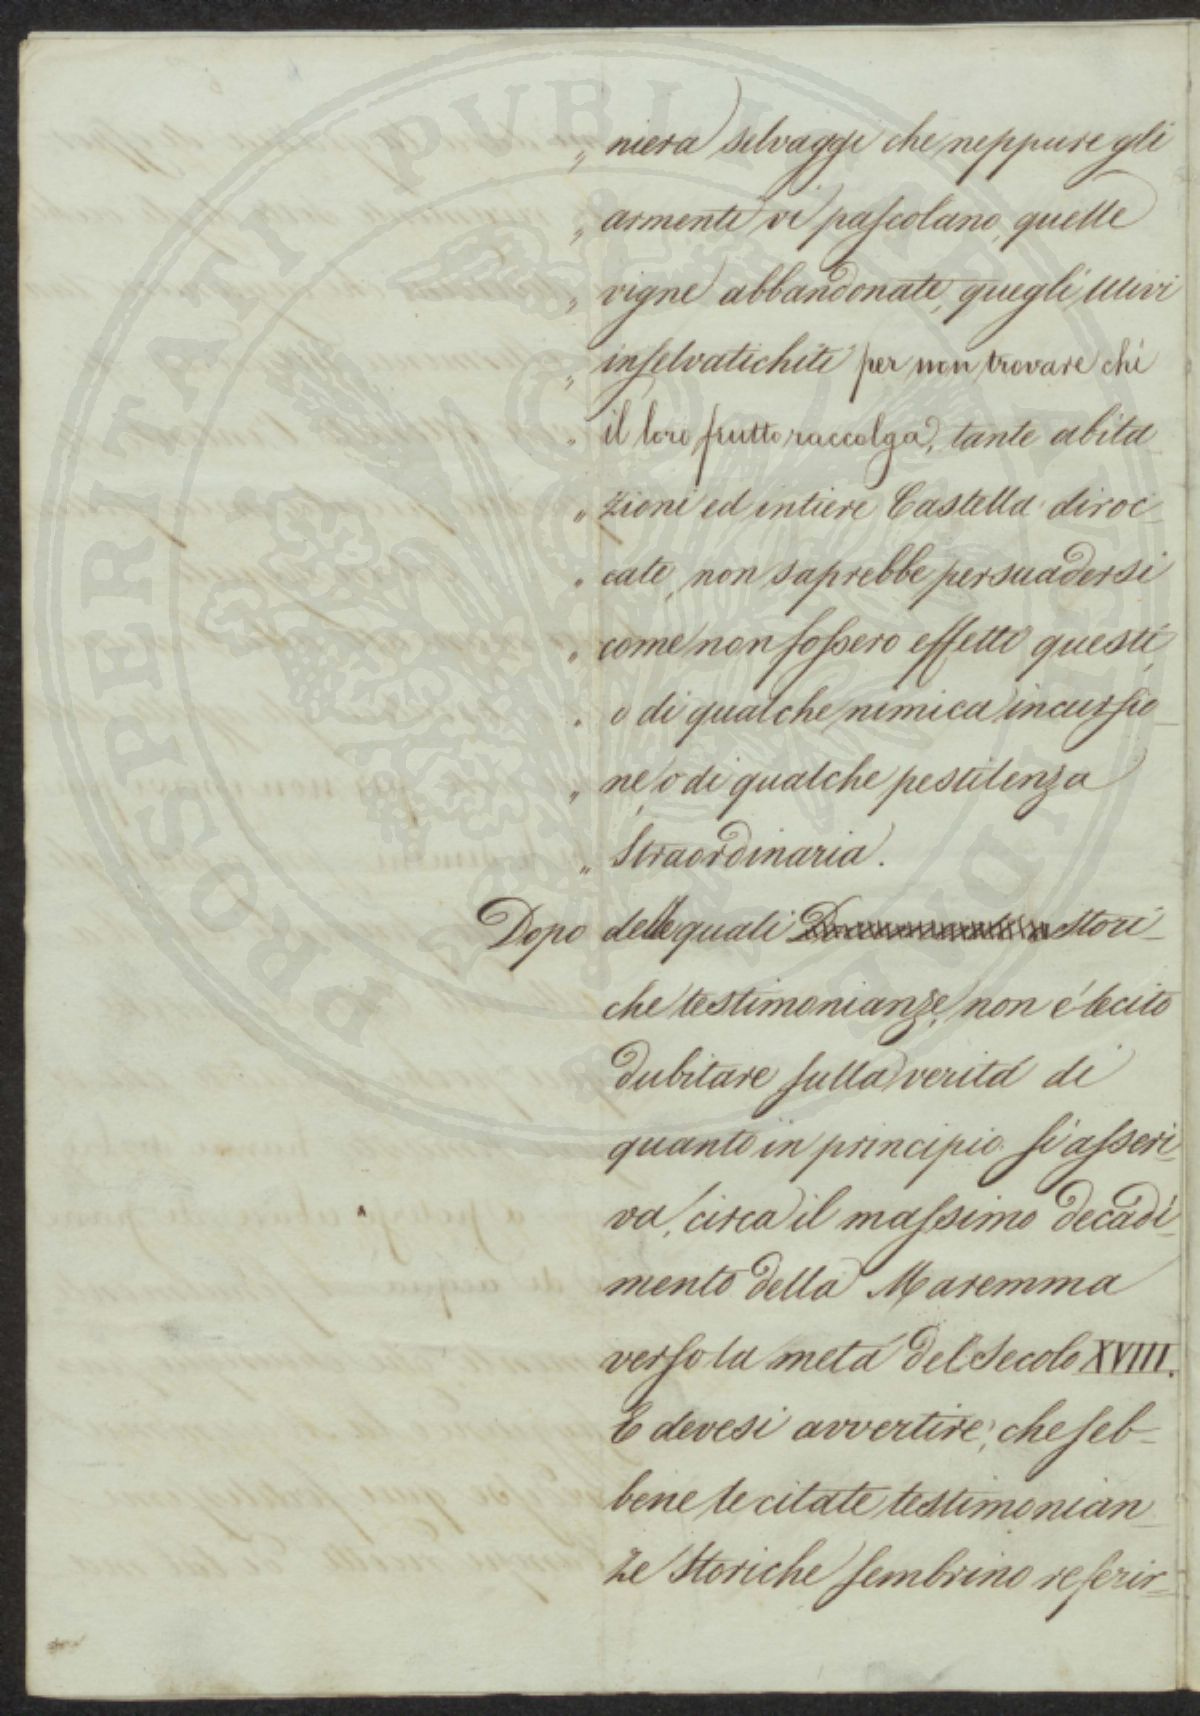 „ niera selvaggi che neppure gli
„ armenti vi pascolano, quelle
„ vigne abbandonate, quegli ulivi
„ inselvatichiti per non trovare chi
„ il loro frutto raccolga, tante abita
„ zioni ed intiere Castella diroc-
„ cate, non saprebbe persuadersi
„ come non fossero effetti questi,
„ o di qualche nimica incursio-
„ ne, o di qualche pestilenza
„ straordinaria.
Dopo delle quali stori-
che testimonianze, non é lecito
dubitare sulla verità di
quanto in principio si asseri-
va, circa il massimo decadi-
mento della Maremma
verso la metà del Secolo XVIII.
E devesi avvertire, che seb-
bene le citate testimonian-
ze storiche sembrino referir-
PROSPERITATI PUBLICAE